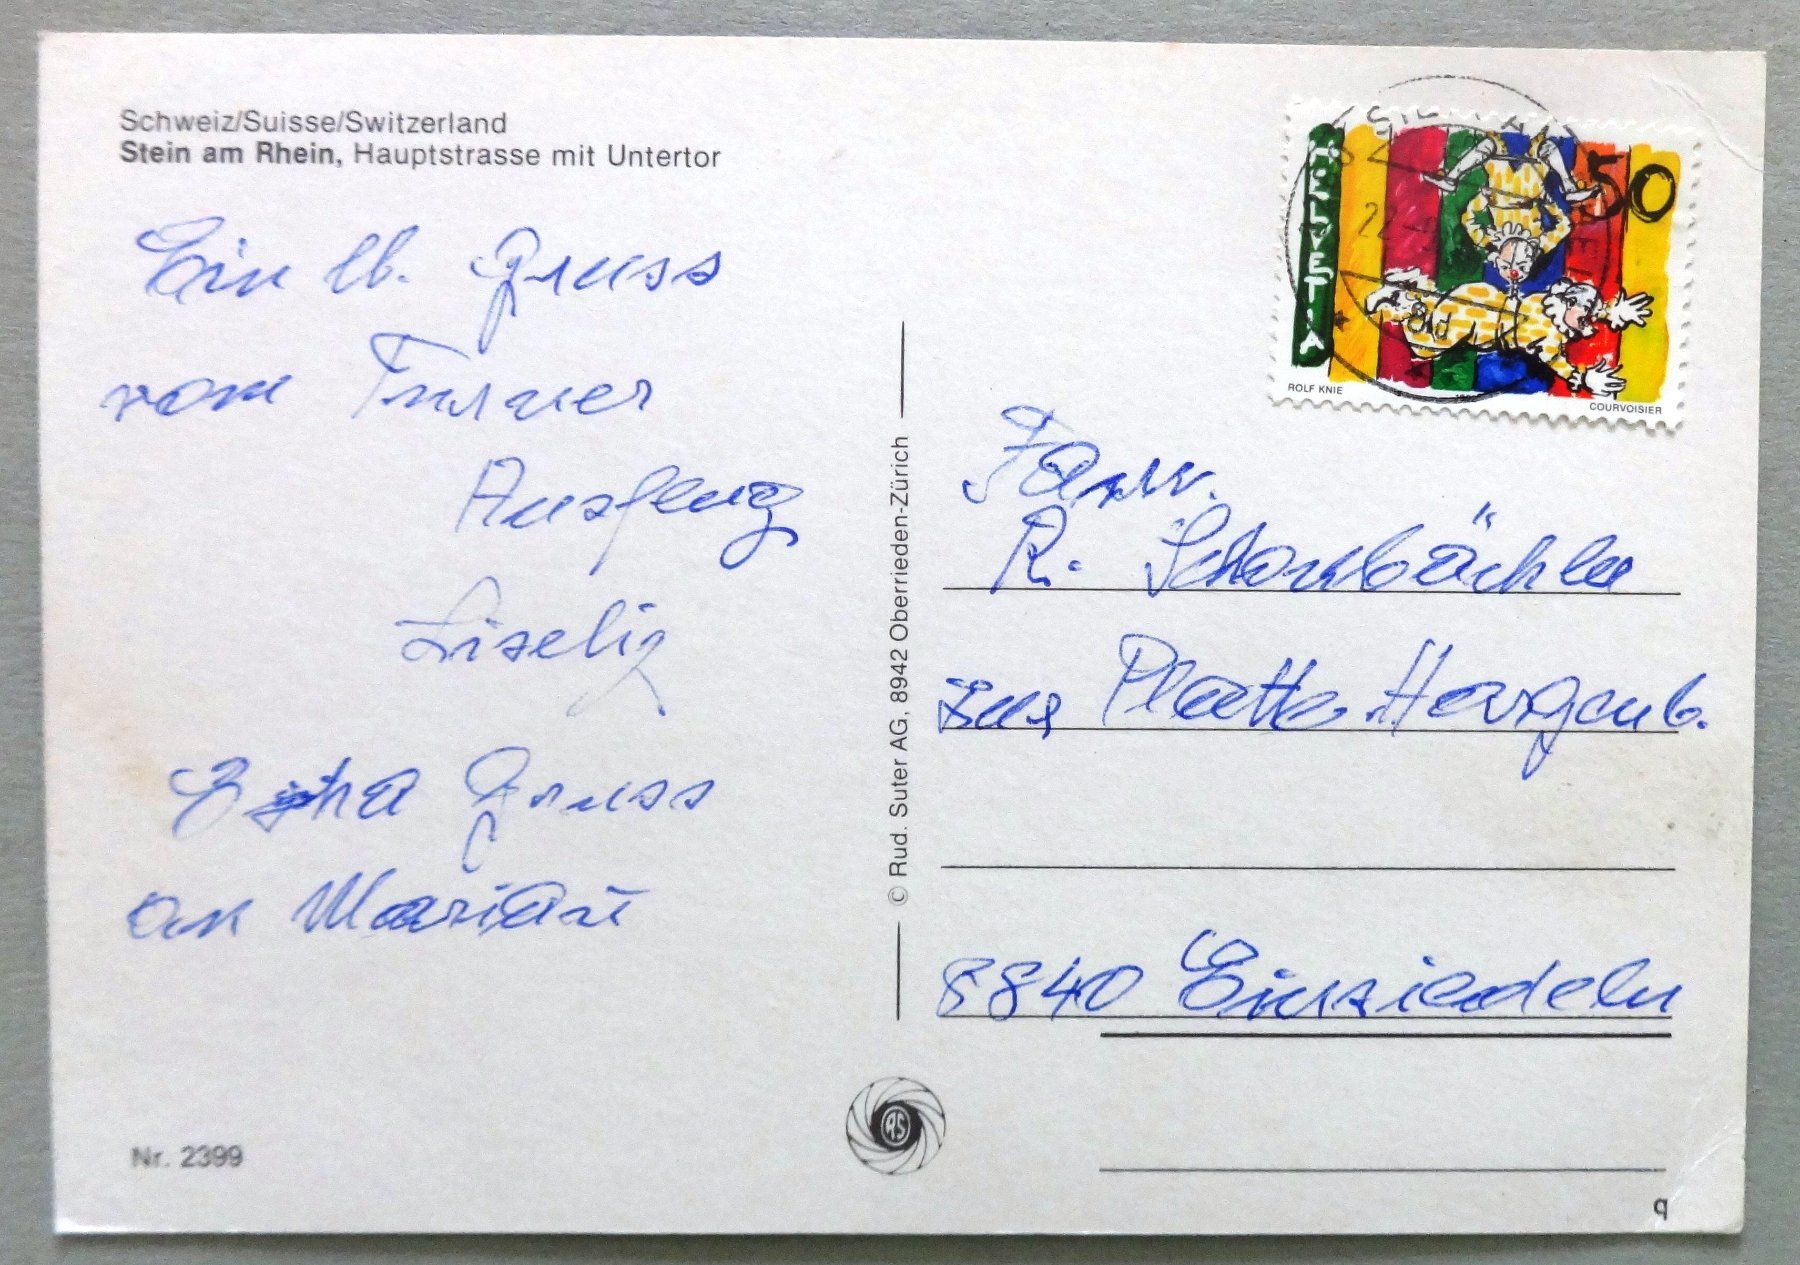 Schweiz/Suisse/Switzerland
Stein am Rhein, Hauptstrasse mit Untertor
Ein lb. Gruss
vom Turner
Ausflug
Liselig
Gruss
an Marian
Nr. 2399
© Rud. Suter AG, 8942 Oberrieden-Zürich
RS
HELVETIA
50
ROLF KNIE
COURVOISIER
22
Fam.
R. Schönbächler
zur Platte
8840 Einsiedeln
q